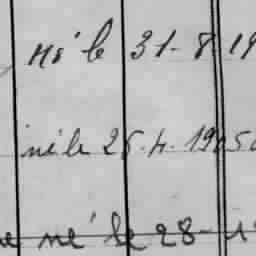 né le 31-8 19
né le 26.4.1905
ne né le 28-1